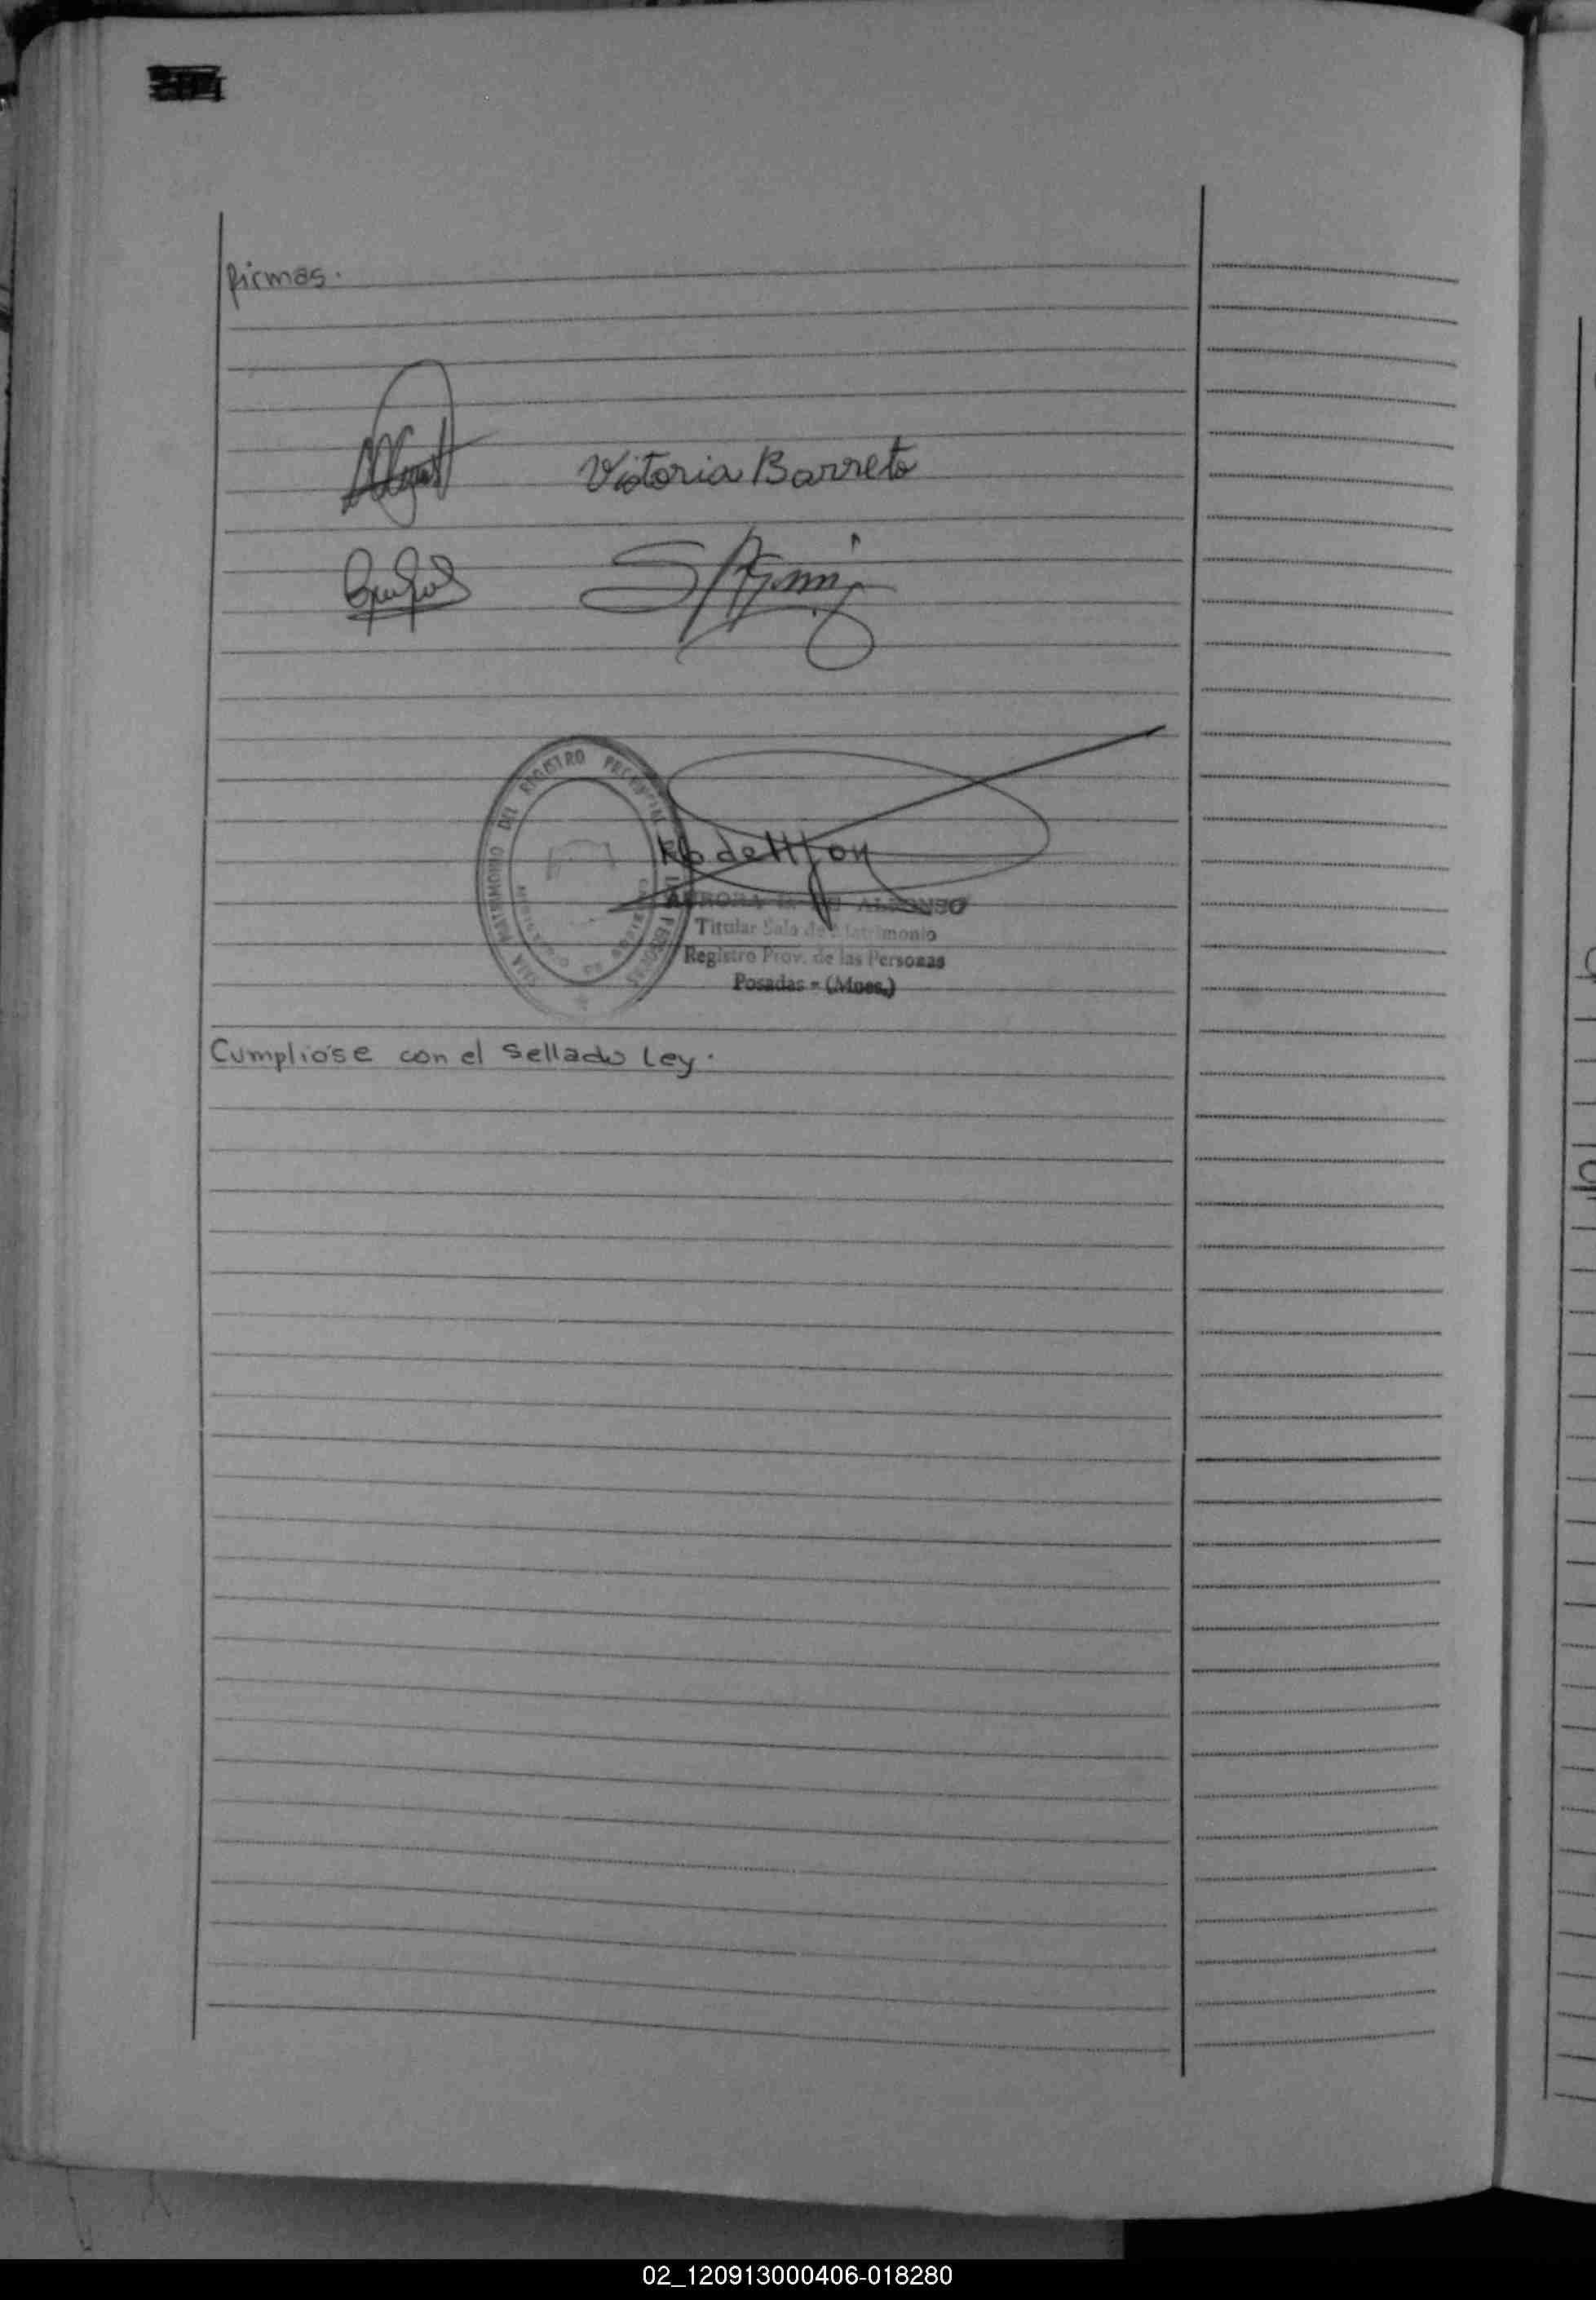 firmas.
Victoria Barreto
SALA MATRIMONIO DEL REGISTRO PROVINCIAL DE LAS PERSONAS
ALFONSO
Titular Sala de Matrimonio
Registro Prov. de las Personas
Posadas - (Mnes.)
Cumpliose con el sellado Ley.
02_120913000406-018280